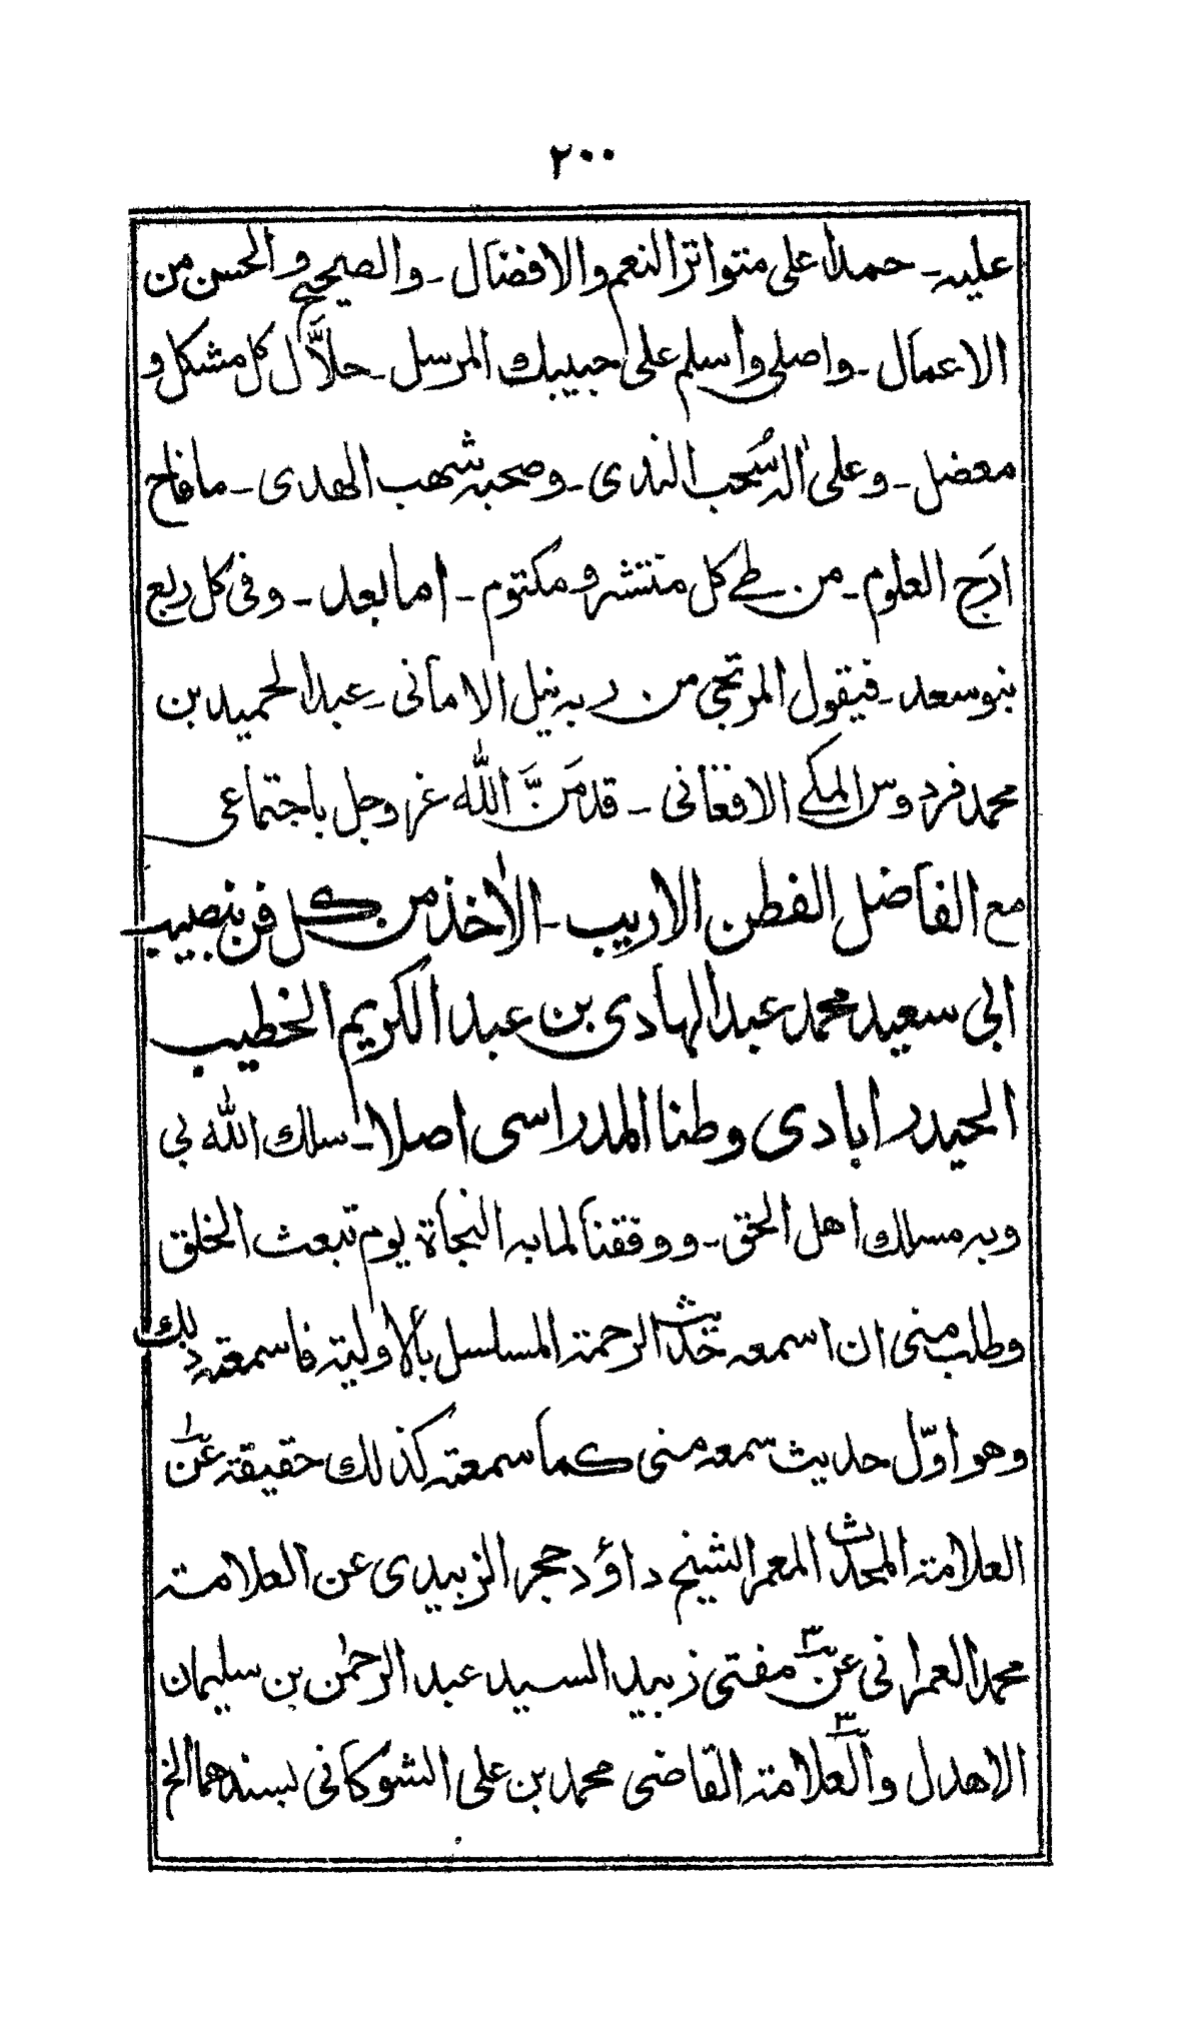 ٢٠٠
عليه ـ حمدا على متواتر النعم والافضال ـ والصحيح والحسن من
الاعمال ـ واصلى واسلم على حبيبك المرسل ـ حلاَّل كل مشكل و
معضل ـ وعلى اٰله سُحب الندى ـ وصحبه شهب الهدى ـ ما فاح
ارَج العلوم ـ من طے كل منتشر ومكتوم ـ اما بعد ـ وفى كل ربع
بنو سعد ـ فيقول المرتجى من ربه نيل الامانى ـ عبد الحميد بن
محمد فردوس المكے الافغانى ـ قد مَنَّ اللّٰه عز وجل باجتماعى
مع الفاضل الفطن الاريب ـ الاٰخذ من كل فن بنصيب
ابى سعيد محمد عبد الهادى بن عبد الكريم الخطيب
الحيدر ابادى وطنا المدراسى اصلا ـ سلك اللّٰه بى
وبه مسلك اهل الحق ـ ووفقنا لما به النجاة يوم تبعث الخلق
وطلب منى ان اسمعه حديث الرحمة المسلسل بالأولية فاسمعته ذلك
وهو اوّل حديث سمعه منى كما سمعته كذلك حقيقة عن
العلامة المحدث المعمر الشيخ داؤد حجر الزبيدى عن العلامة
محمد العمرانى عن٣ مفتى زبيد السيد عبد الرحمٰن بن سليمان
الاهدل والعلامة٣ القاضى محمد بن على الشوكانى بسندهما الخ